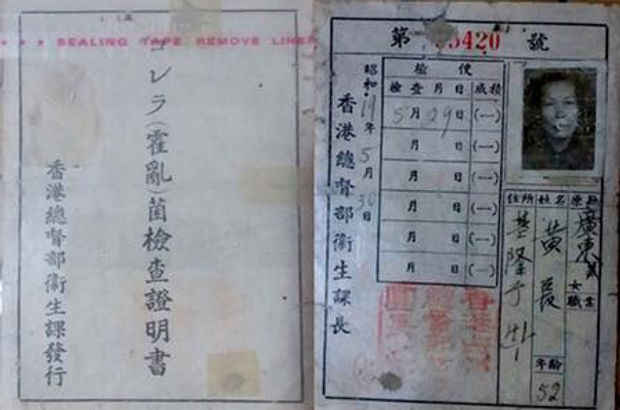 SEALING TAPE REMOVE LINER
コレラ(霍亂)菌檢查證明書
香港總督部衛生課發行
第 5420 號
昭和19年5月30日
香港總督部衛生課長
檢便
檢查月日 成績
5月29日 (一)
月 日 (一)
月 日 (一)
月 日 (一)
月 日 (一)
廣東
女
職業
姓名 黃長
年齡 52
住所 基隆
香港